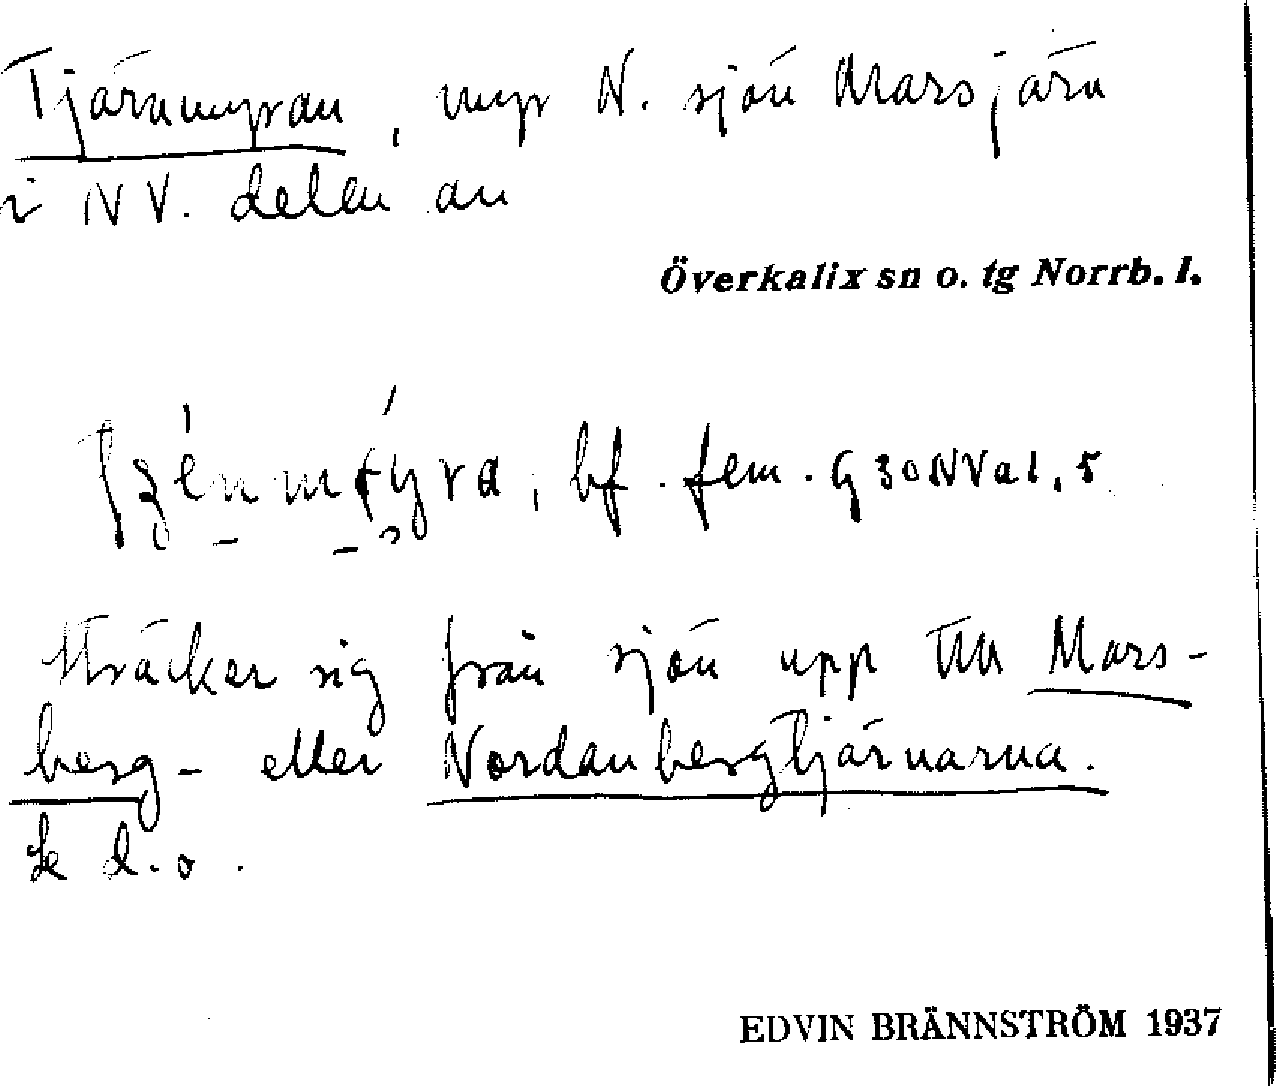 Tjärnmyran, myr N. sjön Marsjärn
i NV. delen av
Överkalix sn o. tg Norrb. l.
bf. fem. G 30 NV a l, 5
sträcker sig från sjön upp till Mars-
berg- eller Nordanbergtjärnarna.
Se d.o.
EDVIN BRÄNNSTRÖM 1937